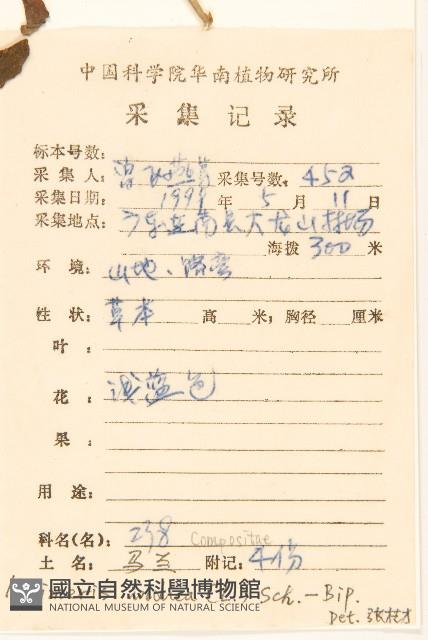 中国科学院华南植物研究所
采集记录
标本号数:
采集人: 曾 采集号数: 452
采集日期: 1991 年 5 月 11 日
采集地点: 广东 南县大龙山林场
海拨 300 米
环境: 山地、路旁
性状: 草本 高 米; 胸径 厘米
叶:
花: 浅蓝色
果:
用途:
科名(名): 238 Compositae
土名: 马兰 附记: 4份
indica (L.) Sch.-Bip.
Det. 张桂才
國立自然科學博物館
NATIONAL MUSEUM OF NATURAL SCIENCE